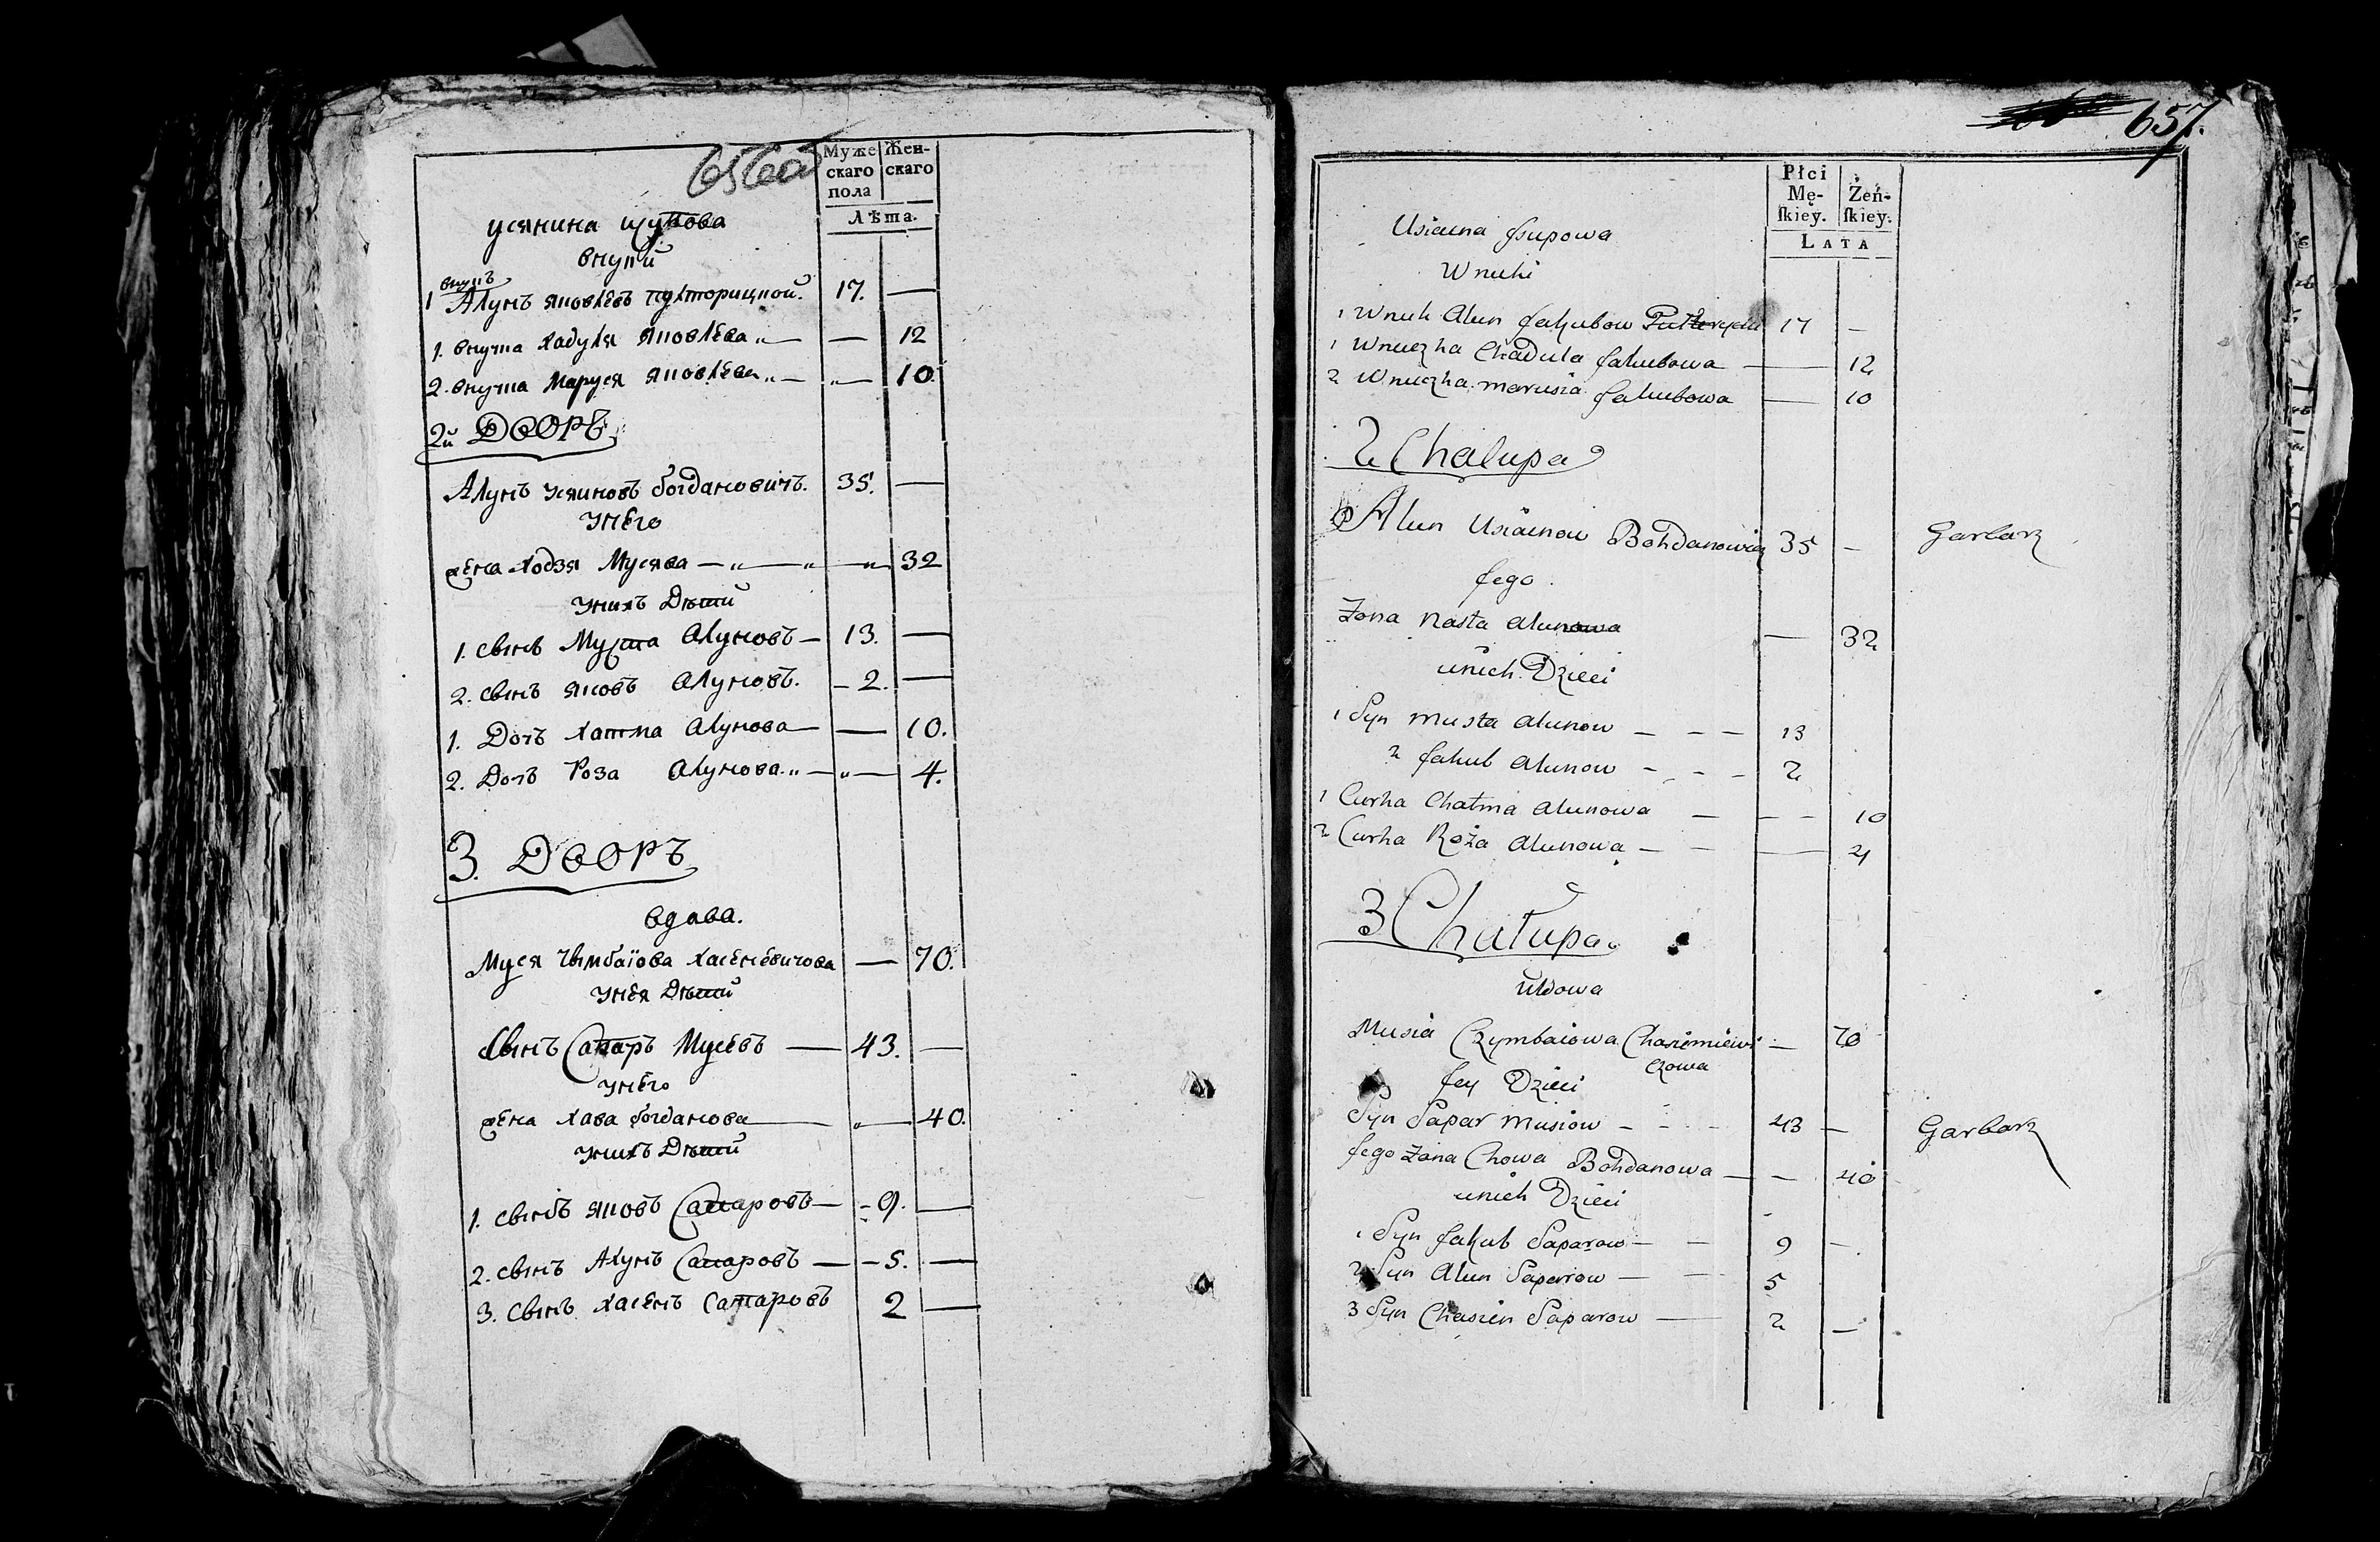 656 об
Муже
скаго
пола
Жен-
скаго
Лѣта.
усяинина щупова
внуки
внукъ
1 Алунъ яковлевъ 17. —
1. внучка хадуля яковлева „— — 12
2. внучка маруся яковлева „— „— 10.
2й Дворъ
Алунъ усяиновъ богдановичъ. 35. —
унего
жена ходзя Мусява —„—„ —„ 32
унихъ Дѣти
1. сынъ Муста Алуновъ — 13. —
2. сынъ яковъ Алуновъ. — 2. —
1. Дочъ хатма Алунова — — 10.
2. Дочъ Роза Алунова „— „— 4.
3. Дворъ
вдова.
Муся чимбаіова хасеневичова — 70.
унея Дѣти
Сынъ Сапаръ Мусевъ — 43. —
унего
жена хава богданова — „— 40.
унихъ Дѣти
1. сынъ яковъ Сапаровъ — - 9. —
2. сынъ Алунъ Сапаровъ — - 5. —
3. сынъ хасенъ Сапаровъ 2 —
657.
Płci
Mę-
ſkiey.
Żeń-
ſkiey.
LATA
Usiaena Jsupowa
Wnuki
1 Wnuk Alun Jakubow 17 —
1 Wnuczka Chadula Jakubowa — — 12
2 Wnuczka marusia Jakubowa — 10
2 Chalupa
Alun Usiainow Bohdanowicz 35 — Garbarz
Jego
Zona nasta alunowa — 32
unich Dzieci
1 Syn musta alunow - - - 13
2 Jakub alunow - - - 2
1 Curka Chatma alunowa — - - 10
2 Curka Roża alunowa — - — 4
3 Chałupa
Udowa
Musia Czymbaiowa Chasieniewi — 70
czowa
Jey Dzieci
Syn Sapar musiow - - - 43 — Garbarz
Jego Zona Chowa Bohdanowa — - 40
unich Dzieci
1 Syn Jakub Saparow — - 9 —
2 Syn Alun Saparow — - 5
3 Syn Chasien Saparow — 2 —